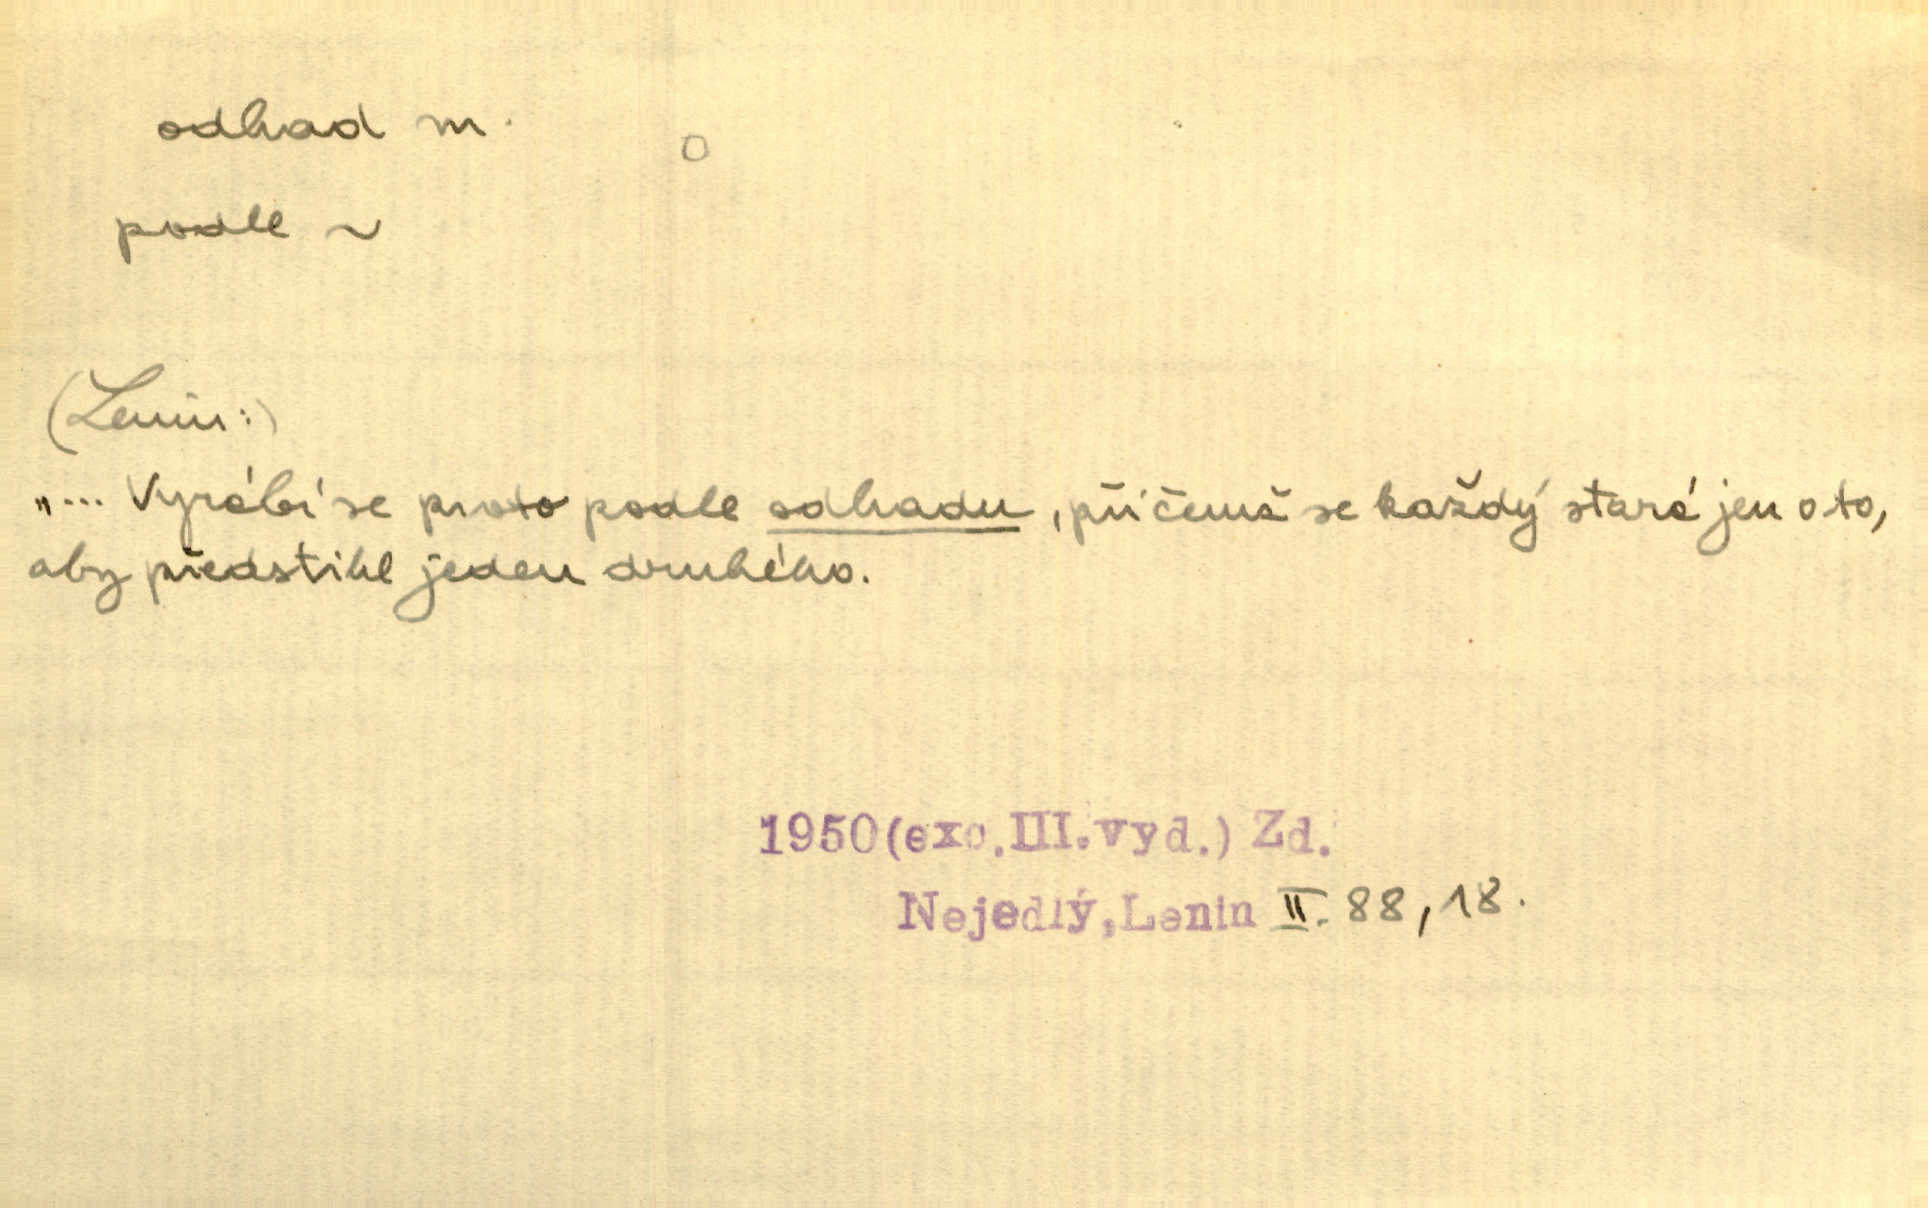 odhad m.
o
podle ~
(Lenin:)
„... Vyrábí se proto podle odhadu, při čemž se každý stará jen o to,
aby předstihl jeden druhého.
1950(exc.III.vyd.) Zd.
Nejedlý,Lenin II. 88, 18.